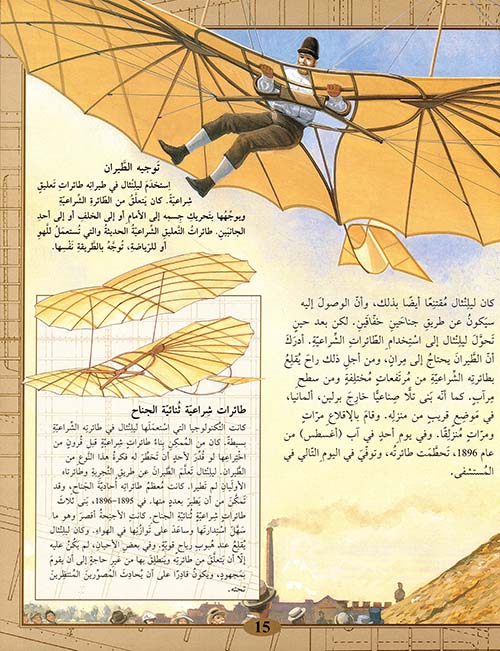 تَوجيه الطَّيران
إستخدَمَ ليلِنْثال في طيرانِه طائراتِ تعليقٍ
شِراعيّةً. كان يَتعلَّقُ من الطّائرة الشِّراعيّة
ويوجِّهُها بتَحريكِ جِسمِه إلى الأمام أو إلى الخلفِ أو إلى أحدِ
الجانِبَين. طائراتُ التَّعليقِ الشِّراعيّةُ الحديثةُ والتي تُستعمَلُ للَّهوِ
أو للرِّياضةِ، تُوجَّهُ بالطَّريقةِ نَفسِها.
كان ليلِنْثال مُقتنِعًا أيضًا بذلك، وأنَّ الوصولَ إليه
سيَكونُ عن طريقِ جناحَينِ خَفّاقَين. لكن بعد حينٍ
تَحوَّلَ ليلِنْثال إلى استخدامِ الطّائراتِ الشِّراعيّةِ. أدرَكَ
أنَّ الطَّيرانَ يحتاجُ إلى مِران، ومن أجلِ ذلك راحَ يُقلِعُ
بطائرتِه الشِّراعيّةِ من مُرتَفعاتٍ مُختلِفةٍ ومن سطحِ
مِرآبٍ. كما أنّه بَنى تلًّا صِناعيًّا خارِجَ برلين، ألمانيا،
في مَوضِعٍ قريبٍ من منزلِه. وقامَ بالإقلاعِ مرّاتٍ
ومرّاتٍ مُنزلِقًا. وفي يومِ أحدٍ في آب (أغسطس) من
عام 1896، تَحطَّمَت طائرتُه، وتوفِّيَ في اليومِ التّالي في
المُستشفى.
طائرات شِراعيّة ثُنائيّة الجناح
كانت التِّكنولوجيا التي استَعمَلَها ليلِنْثال في طائرتِه الشِّراعيّةِ
بسيطةً. كان من المُمكِنِ بناءُ طائراتٍ شِراعيّةٍ قبلَ قُرونٍ من
اختِراعِها لو قُدِّرَ لأحدٍ أن تَخطُرَ له فكرةُ هذا النَّوعِ من
الطَّيران. ليلِنْثال تَعلَّمَ الطَّيرانَ عن طريقِ التَّجرِبةِ وطائرتاه
الأوليان لم تَطيرا. كانت مُعظَمُ طائراتِه أُحاديّةَ الجَناحِ، وقد
تَمكَّنَ من أن يَطيرَ بعددٍ منها. في 1895-1896، بَنى ثلاثَ
طائراتٍ شِراعيّةٍ ثُنائيّةِ الجَناح. كانت الأجنحةُ أقصرَ وهو ما
سَهَّلَ استِدارتَها وساعَدَ على تَوازُنِها في الهواءِ. وكان ليلِنْثال
يُقلِعُ عندَ هُبوبِ رياحٍ قويّةٍ. وفي بعضِ الأحيانِ، لم يكُنْ عليه
إلّا أن يَتعلَّقَ من طائرتِه ويَنطلِقَ بها من غيرِ حاجةٍ إلى أن يقومَ
بمَجهودٍ، ويكونُ قادرًا على أن يُحادِثَ المصوِّرينَ المُنتظِرينَ
تحتَه.
15